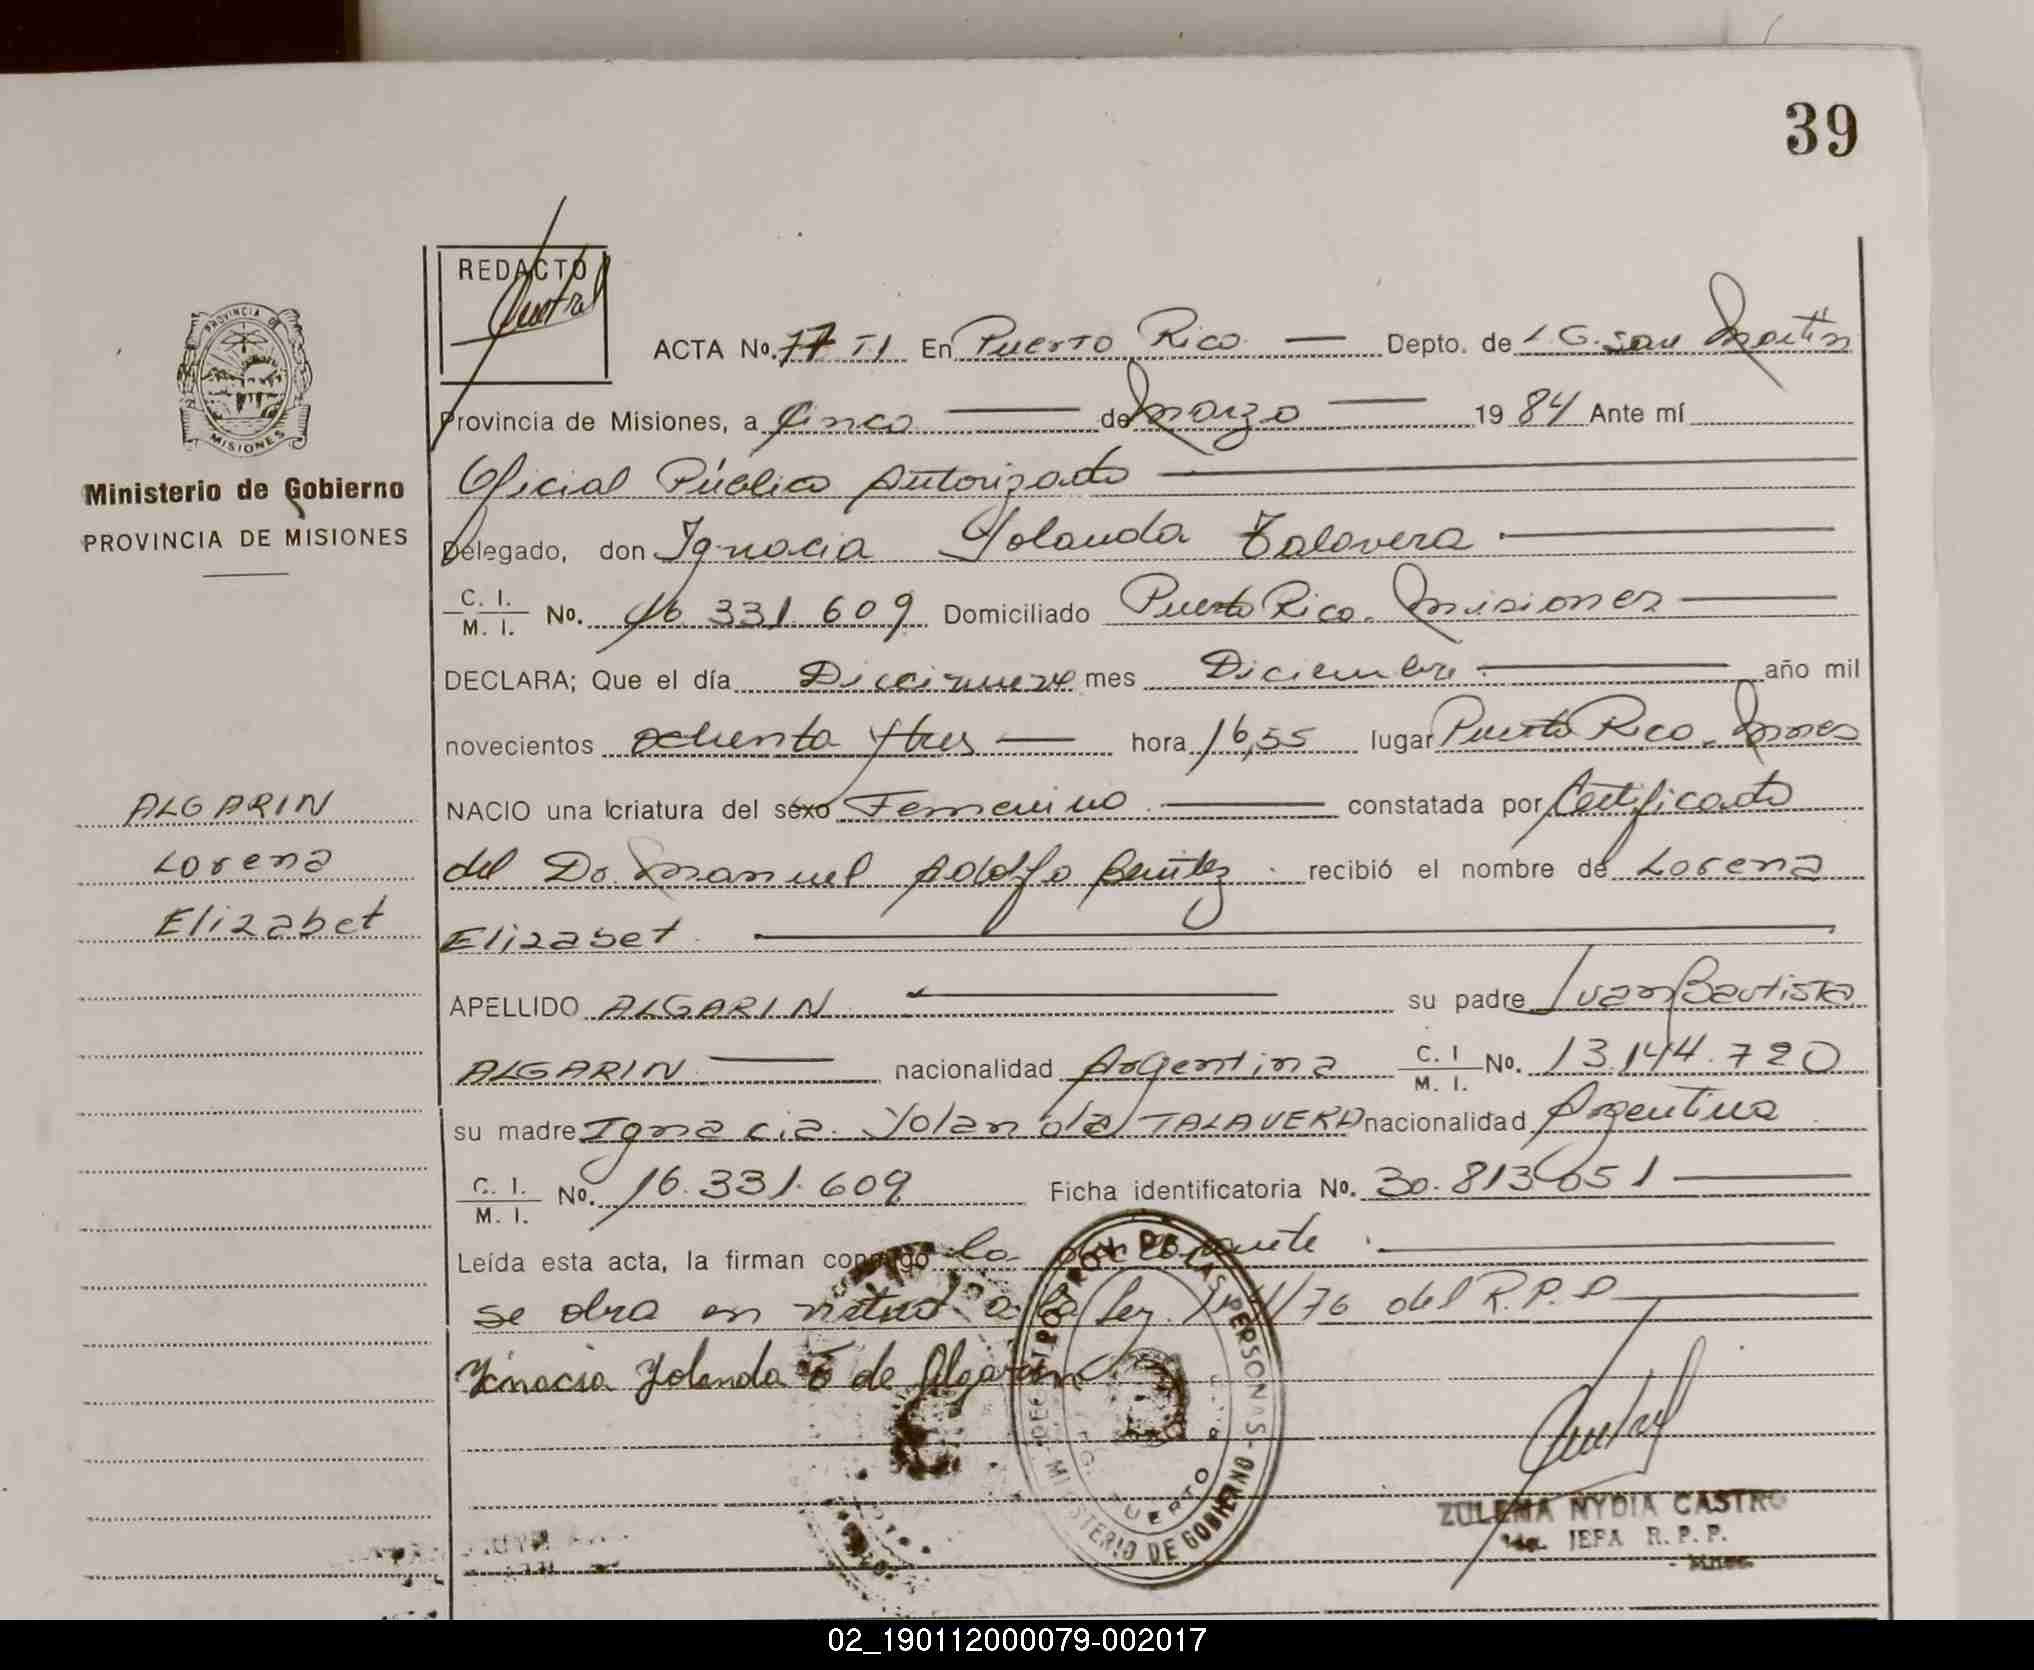 39
REDACTO
PROVINCIA DE
MISIONES
Ministerio de Gobierno
PROVINCIA DE MISIONES
ACTA No. 77 TI En Puerto Rico — Depto. de L. G. San Martín
Provincia de Misiones, a Cinco — de Marzo — 1984 Ante mí
Oficial Público Autorizado —
Delegado, don Ignacia Yolanda Talavera —
C. I. / M. I. No. 16.331.609 Domiciliado Puerto Rico. Misiones —
DECLARA; Que el día Diecinueve mes Diciembre — año mil
novecientos ochenta y tres — hora 16,55 lugar Puerto Rico. Mnes
NACIO una criatura del sexo Femenino — constatada por Certificado
del Dr. Manuel Adolfo Benítez. recibió el nombre de Lorena
Elizabet. —
APELLIDO ALGARIN — su padre Juan Bautista
ALGARIN — nacionalidad Argentina C. I / M. I. No. 13.144.720
su madre Ignacia Yolanda TALAVERA nacionalidad Argentina
C. I. / M. I. No. 16.331.609 Ficha identificatoria No. 30.813.051 —
Leída esta acta, la firman conmigo la —
se obra en virtud a la Ley /76 del R.P.P —
Ignacia Yolanda T de Algarin
ALGARIN
Lorena
Elizabet
DE LAS PERSONAS - MINISTERIO DE GOBIERNO
PUERTO
ZULEMA NYDIA CASTRO
JEFA R. P. P.
Mnes.
02_190112000079-002017